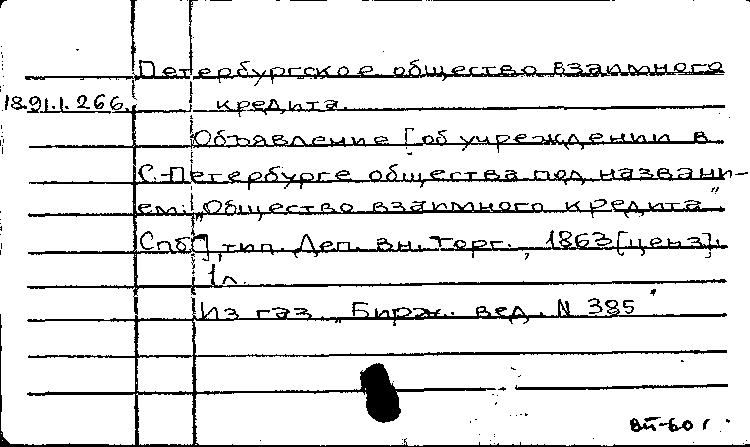 Петербургское общество взаимного
18.91.1.266. кредита.
Объявление [об учреждении в
С.-Петербурге общества под названи-
ем: „Общество взаимного кредита"
Спб], тип. Деп. вн. торг., 1863 [ценз].
1 л.
Из газ. „Бирж. вед. N 385"
ВП-60 г.